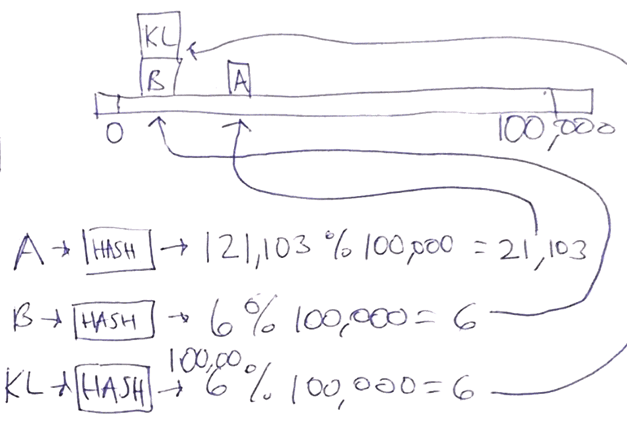 KL
B A
0 100,000
A → HASH → 121,103 % 100,000 = 21,103
B → HASH → 6 % 100,000 = 6
100,00
KL → HASH → 6 % 100,000 = 6